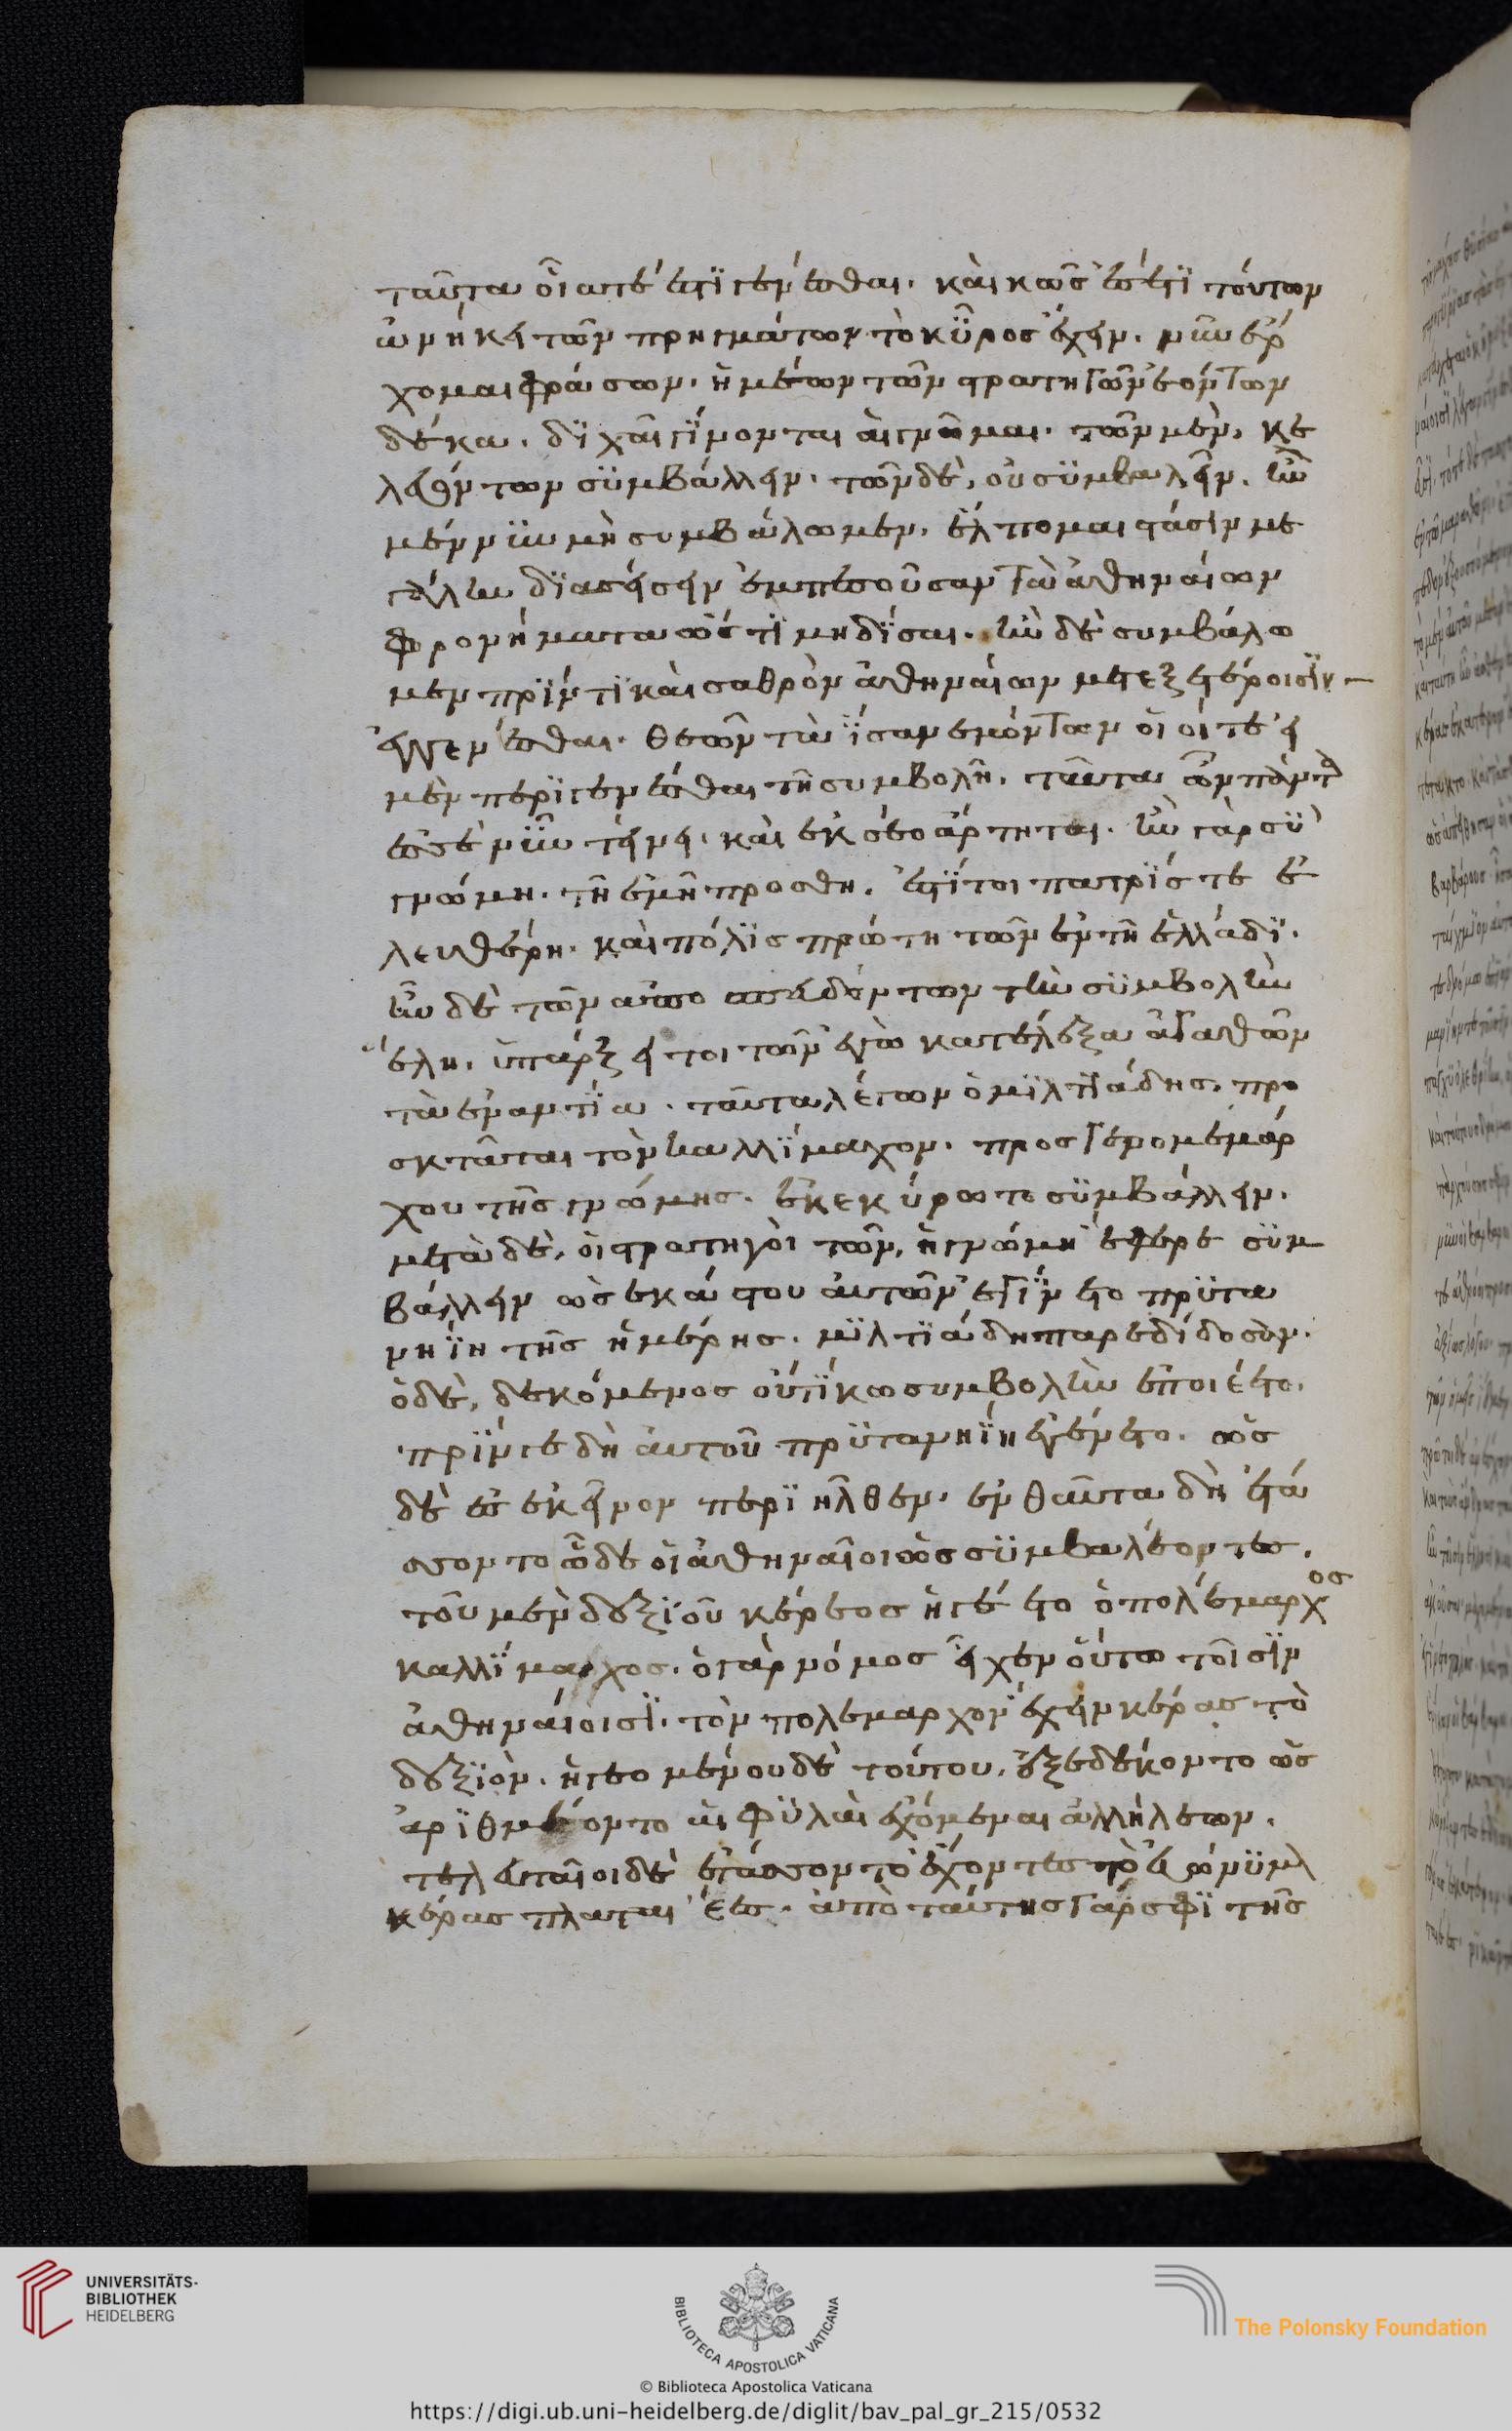 ταῦτα οἷά τέ ἐστι γενέσθαι. καὶ κῶς ἐς σέ τι τούτων
ἀνήκει τῶν πρηγμάτων τὸ κῦρος ἔχειν. νῦν ἔρ
χομαι φράσων. ἡμέων τῶν στρατηγῶν ἐόντων
δέκα. δίχα γίνονται αἱ γνῶμαι. τῶν μὲν, κε
λευόντων συμβάλλειν. τῶν δὲ, οὐ συμβαλεῖν. ἢν
μέν νυν μὴ συμβάλωμεν, ἔλπομαι στάσιν με
γάλην διασείσειν ἐμπεσοῦσαν τὰ ἀθηναίων
φρονήματα ὥστε μηδίσαι. ἢν δὲ συμβάλω
μεν πρίν τι καὶ σαθρὸν ἀθηναίων μετεξετέροισιν
ἐγγενέσθαι. θεῶν τὰ ἴσα νεμόντων οἷοί τέ εἰ
μεν περιγενέσθαι τῇ συμβολῇ. ταῦτα ὦν πάντα
ἐς σὲ νῦν τείνει. καὶ ἐκ σέο ἄρτηται. ἢν γὰρ σὺ
γνώμῃ τῇ ἐμῇ προσθῇ. ἔστι τοι πατρίς τε ἐ
λευθέρη. καὶ πόλις πρώτη τῶν ἐν τῇ ἑλλάδι.
ἢν δὲ τῶν ἀποσπευδόντων τὴν συμβολὴν
ἕλῃ. ὑπάρξει τοι τῶν ἐγὼ κατέλεξα ἀγαθῶν
τὰ ἐναντία. ταῦτα λέγων ὁ μιλτιάδης. προ
σκτᾶται τὸν καλλίμαχον. προσγενομένης
χου τῆς γνώμης. ἐκεκύρωτο συμβάλλειν.
μετὰ δὲ, οἱ στρατηγοὶ τῶν, ἡ γνώμη ἔφερε συμ
βάλλειν ὡς ἑκάστου αὐτῶν ἐγίνετο πρυτα
νηίη τῆς ἡμέρης. μιλτιάδῃ παρεδίδοσαν.
ὁ δὲ, δεκόμενος οὔτι κω συμβολὴν ἐποιέετο.
πρίν γε δὴ αὐτοῦ πρυτανηίη ἐγένετο. ὡς
δὲ ἐς ἐκεῖνον περιῆλθεν. ἐνθαῦτα δὴ ἐτά
σσοντο ὧδε οἱ ἀθηναῖοι ὡς συμβαλέοντες.
τοῦ μὲν δεξιοῦ κέρεος ἡγέετο ὁ πολέμαρχος
καλλίμαχος. ὁ γὰρ νόμος εἶχεν οὕτω τοῖσιν
ἀθηναίοισι. τὸν πολέμαρχον ἔχειν κέρας τὸ
δεξιὸν. ἡγεομένου δὲ τούτου, ἐξεδέκοντο ὡς
ἀριθμέοντο αἱ φυλαὶ ἐχόμεναι ἀλληλέων.
τελευταῖοι δὲ ἐτάσσοντο ἔχοντες τὸ εὐώνυμον
κέρας πλαταιέες. ἀπὸ ταύτης γάρ σφι τῆς
UNIVERSITÄTS-
BIBLIOTHEK
HEIDELBERG
BIBLIOTECA APOSTOLICA VATICANA
The Polonsky Foundation
© Biblioteca Apostolica Vaticana
https://digi.ub.uni-heidelberg.de/diglit/bav_pal_gr_215/0532